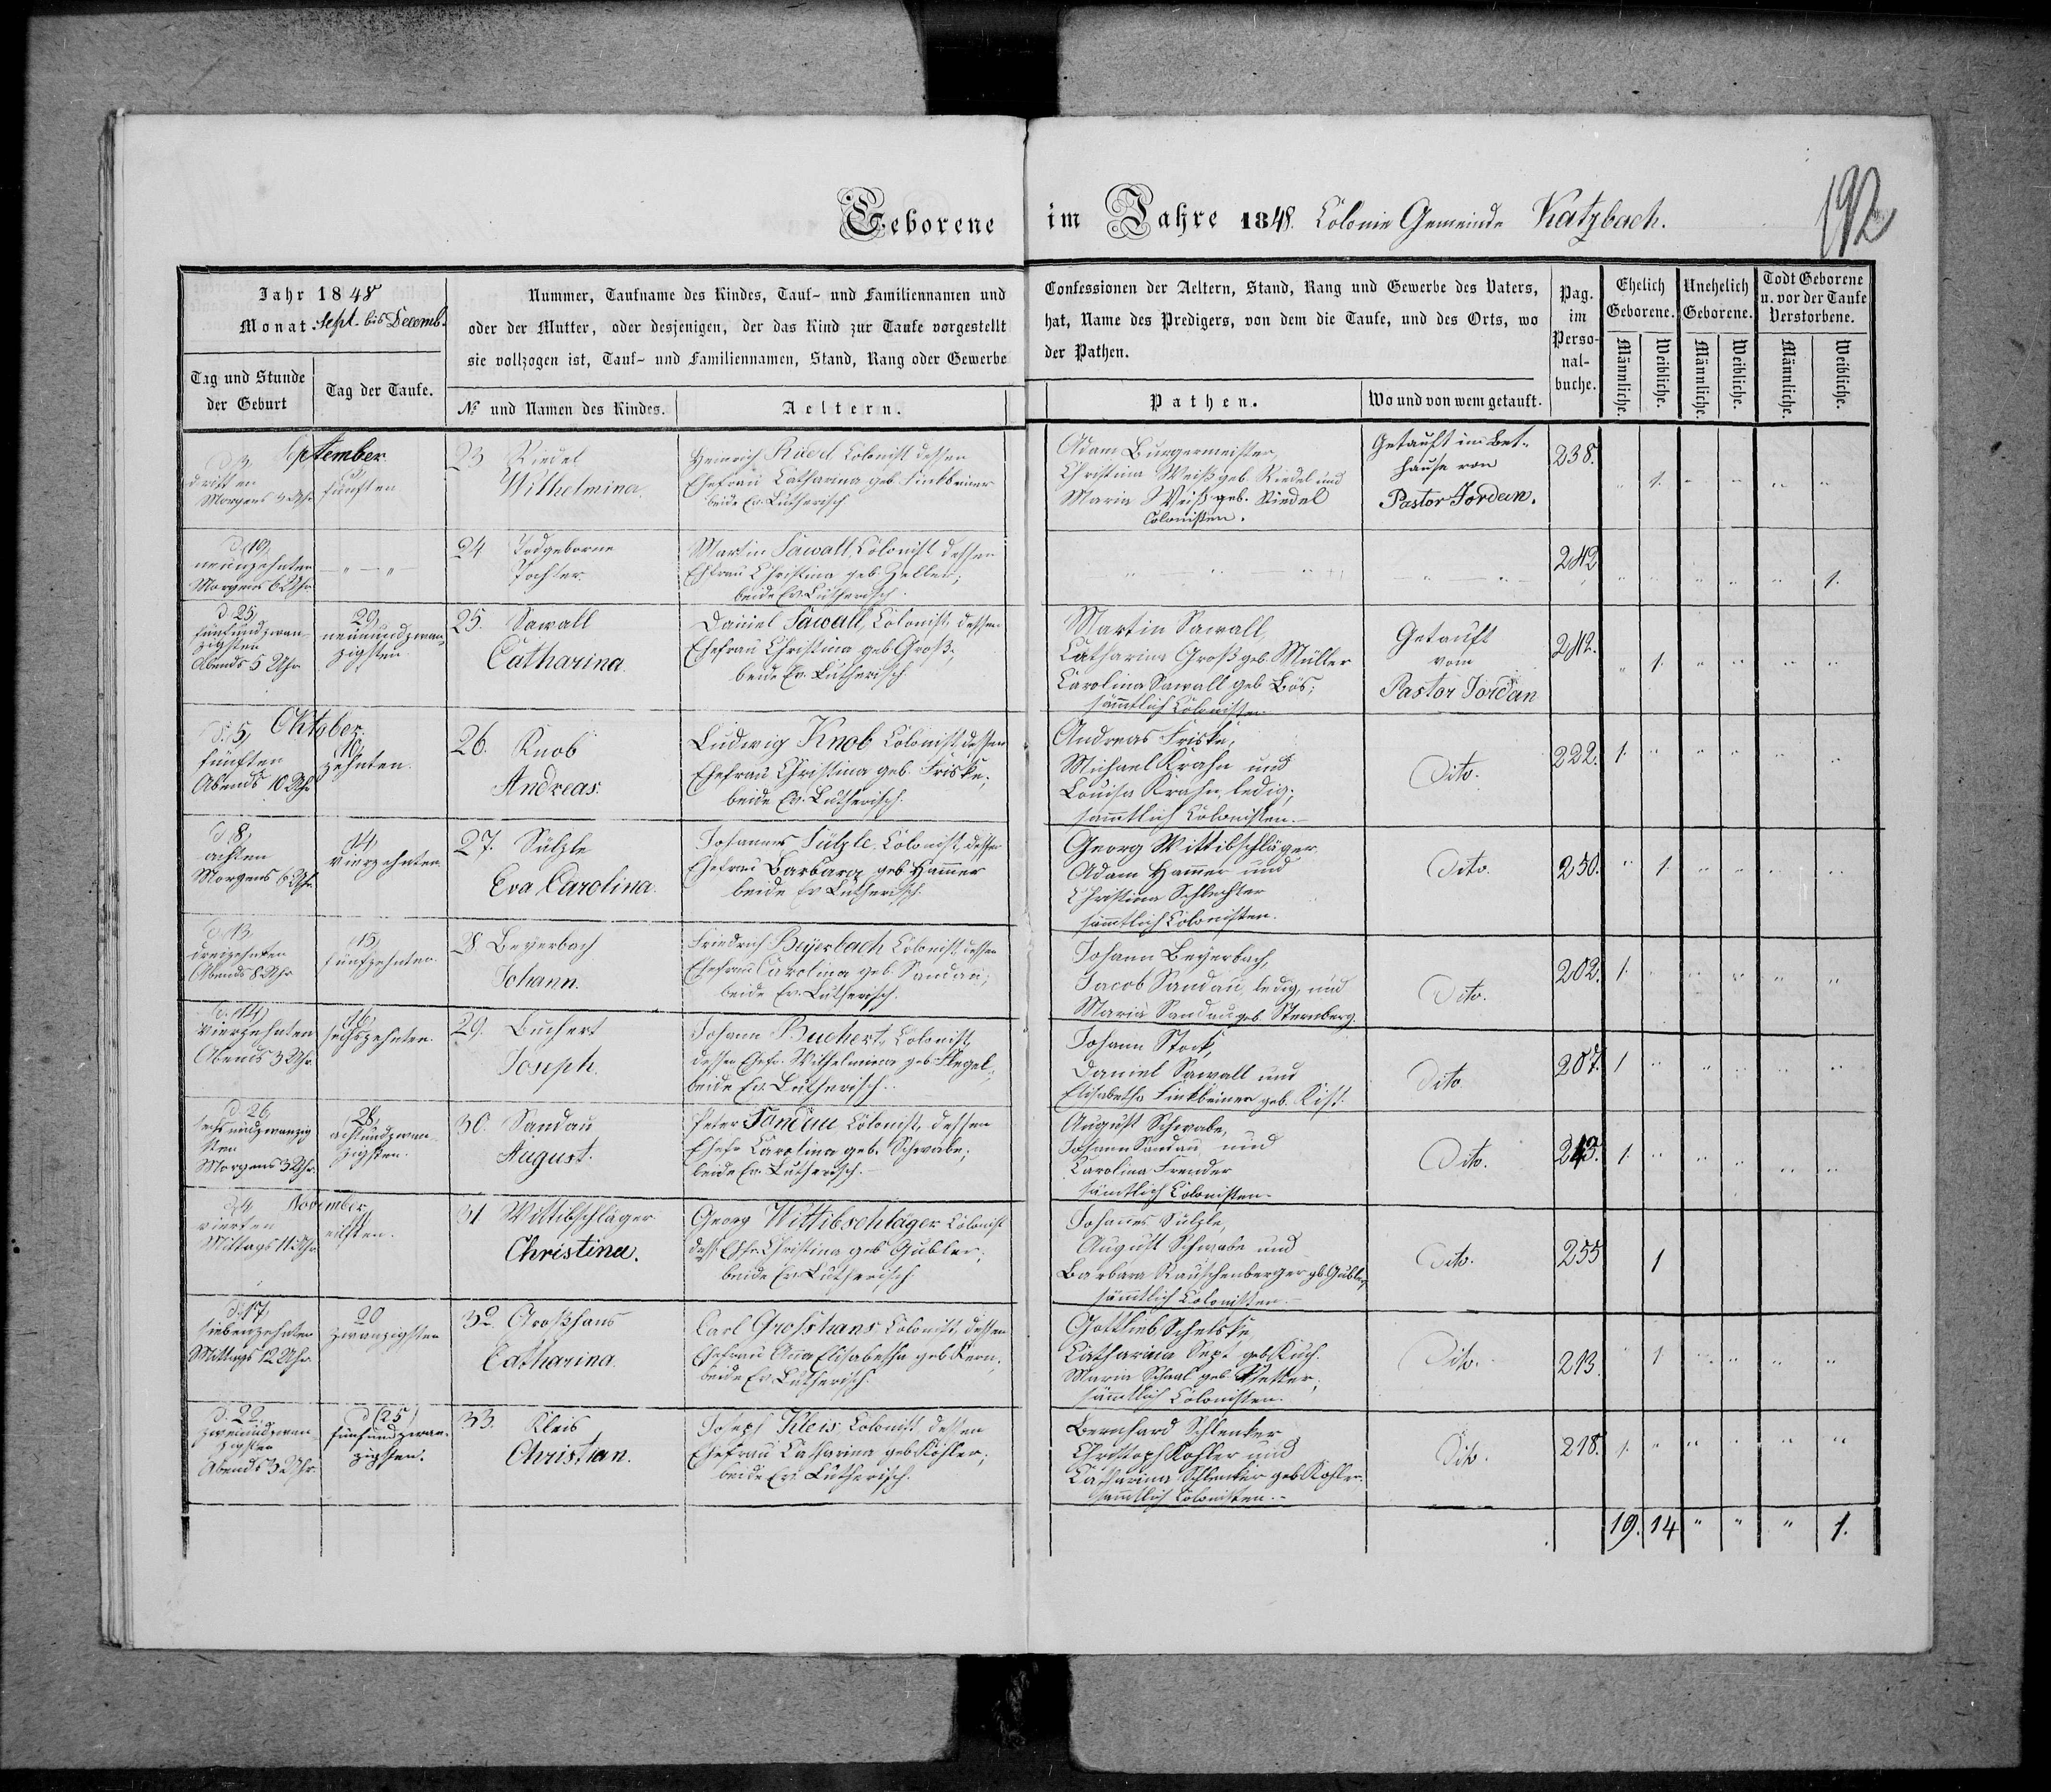 Geborene im Jahre 1848. Colonie Gemeinde Katzbach.
192
Jahr 1848
Monat Sept. bis Decemb.
Tag und Stunde
der Geburt
Tag der Taufe.
Nummer, Taufname des Kindes, Tauf- und Familiennamen und
oder der Mutter, oder desjenigen, der das Kind zur Taufe vorgestellt
sie vollzogen ist, Tauf- und Familiennamen, Stand, Rang oder Gewerbe
№ und Namen des Kindes.
Aeltern.
Confessionen der Aeltern, Stand, Rang und Gewerbe des Vaters,
hat, Name des Predigers, von dem die Taufe, und des Orts, wo
der Pathen.
Pathen.
Wo und von wem getauft.
Pag.
im
Perso-
nal-
buche.
Ehelich
Geborene.
Unehelich
Geborene.
Todt Geborene
u. vor der Taufe
Verstorbene.
Männliche.
Weibliche.
Männliche.
Weibliche.
Männliche.
Weibliche.
September
d. 3,
dritten
Morgens Uhr
fünften
23 Riedel
Wilhelmina.
Heinrich Riedel Colonist dessen
Ehefrau Catharina geb. Finkbeiner
beide Ev. Lutherisch
Adam Burgermeister,
Christina Weiß geb. Riedel und
Maria Weiß geb. Riedel
Colonisten.
Getauft im Bet-
hause von
Pastor Jordan.
238.
" 1. " " " "
d. 19,
neunzehnten
Morgens 6 Uhr
" — "
24 Todgeborne
Tochter.
Martin Sawall, Colonist dessen
Ehfrau Christina geb. Zeller;
beide Ev. Lutherisch.
242
" " " " " 1.
d. 25,
fünfundzwan-
zigsten
Abends 5 Uhr
29,
neunundzwan-
zigsten.
25. Sawall
Catharina.
Daniel Sawall, Colonist dessen
Ehefrau Christina geb. Groß;
beide Ev. Lutherisch.
Martin Sawall,
Catharina Groß geb. Müller
Carolina Sawall geb. Bös;
sämmtlich Colonisten
Getauft
vom
Pastor Jordan
242.
" 1. " " " "
Oktober.
d. 5,
fünften
Abends 10 Uhr
10,
zehnten.
26. Knob
Andreas.
Ludwig Knob Colonist, dessen
Ehefrau Christina geb. Friske;
beide Ev. Lutherisch.
Andreas Friske,
Michael Krahn und
Louisa Krahn, ledig;
sammtlich Colonisten.
Dito.
222. 1. " " " " "
d. 8,
achten
Morgens 6 Uhr.
14,
vierzehnten
27. Sülzle
Eva Carolina.
Johannes Sülzle. Colonist dessen
Ehefrau Barbara geb. Hammer
beide Ev. Lutherisch.
Georg Wittibschläger
Adam Hammer und
Christina Schlechter
sämmtlich Colonisten.
Dito.
250. " 1. " " " "
d. 13,
dreizehnten
Abends 8 Uhr
15,
fünfzehnten.
28 Beyerbach
Johann.
Friedrich Beyerbach Colonist, dessen
Ehefrau Carolina geb. Sandau;
beide Ev. Lutherisch.
Johann Beyerbach,
Jacob Sandau, ledig, und
Maria Sandau geb. Sternberg.
Dito.
202. 1. " " " " "
d. 14,
vierzehnten
Abends 3 Uhr.
16,
sechszehnten.
29. Buchert
Joseph.
Johann Buchert, Colonist,
dessen Ehefr. Wilhelmina geb. Flegel;
beide Ev. Lutherisch.
Johann Stock,
Daniel Sawall und
Elisabetha Finkbeiner geb. Kist.
Dito
207. 1 " " " " "
d. 26,
sechsundzwanzig
sten
Morgens 3 Uhr.
28,
achtundzwan-
zigsten.
30. Sandau
August.
Peter Sandau Colonist, dessen
Ehefr. Carolina geb. Schwabe;
beide Ev. Lutherisch.
August Schwabe,
Johann Sandau und
Carolina Frender
sämtlich Colonisten.
Dito.
243. 1. " " " " "
November
d. 4
vierten
Mittags 11 Uhr.
eilften.
31 Wittibschläger
Christina.
Georg Wittibschläger Colonist
dess. Ehfr. Christina geb. Gubler;
beide Ev. Lutherisch.
Johannes Sülzle,
August Schwabe und
Barbara Rauschenberger gb. Gubler,
sämmtlich Colonisten.
Dito.
255 1
d. 17,
siebenzehnten
Mittags 12 Uhr
20
zwanzigsten
32. Großhans
Catharina.
Carl Grosshans Colonist, dessen
Ehefrau Anna Elisabetha geb. Kern;
beide Ev. Lutherisch.
Gottlieb Schelske,
Catharina Sept geb. Kuch.
Maria Schaal geb. Vetter;
sämtlich Colonisten.
Dito.
213. " 1 " " " "
d. 22,
zweiundzwan-
zigsten
Abends 3 Uhr.
d. (25)
fünfundzwan-
zigsten.
33. Kleis
Christian.
Joseph Kleis, Colonist dessen
Ehefrau Catharina geb. Kohler;
beide Ev. Lutherisch.
Bernhard Schlenker
Christoph Kohler und
Catharina Schlenker geb. Kohler.
sammtlich Colonisten.
Dito.
218. 1. " " " " "
19. 14 " " " 1.